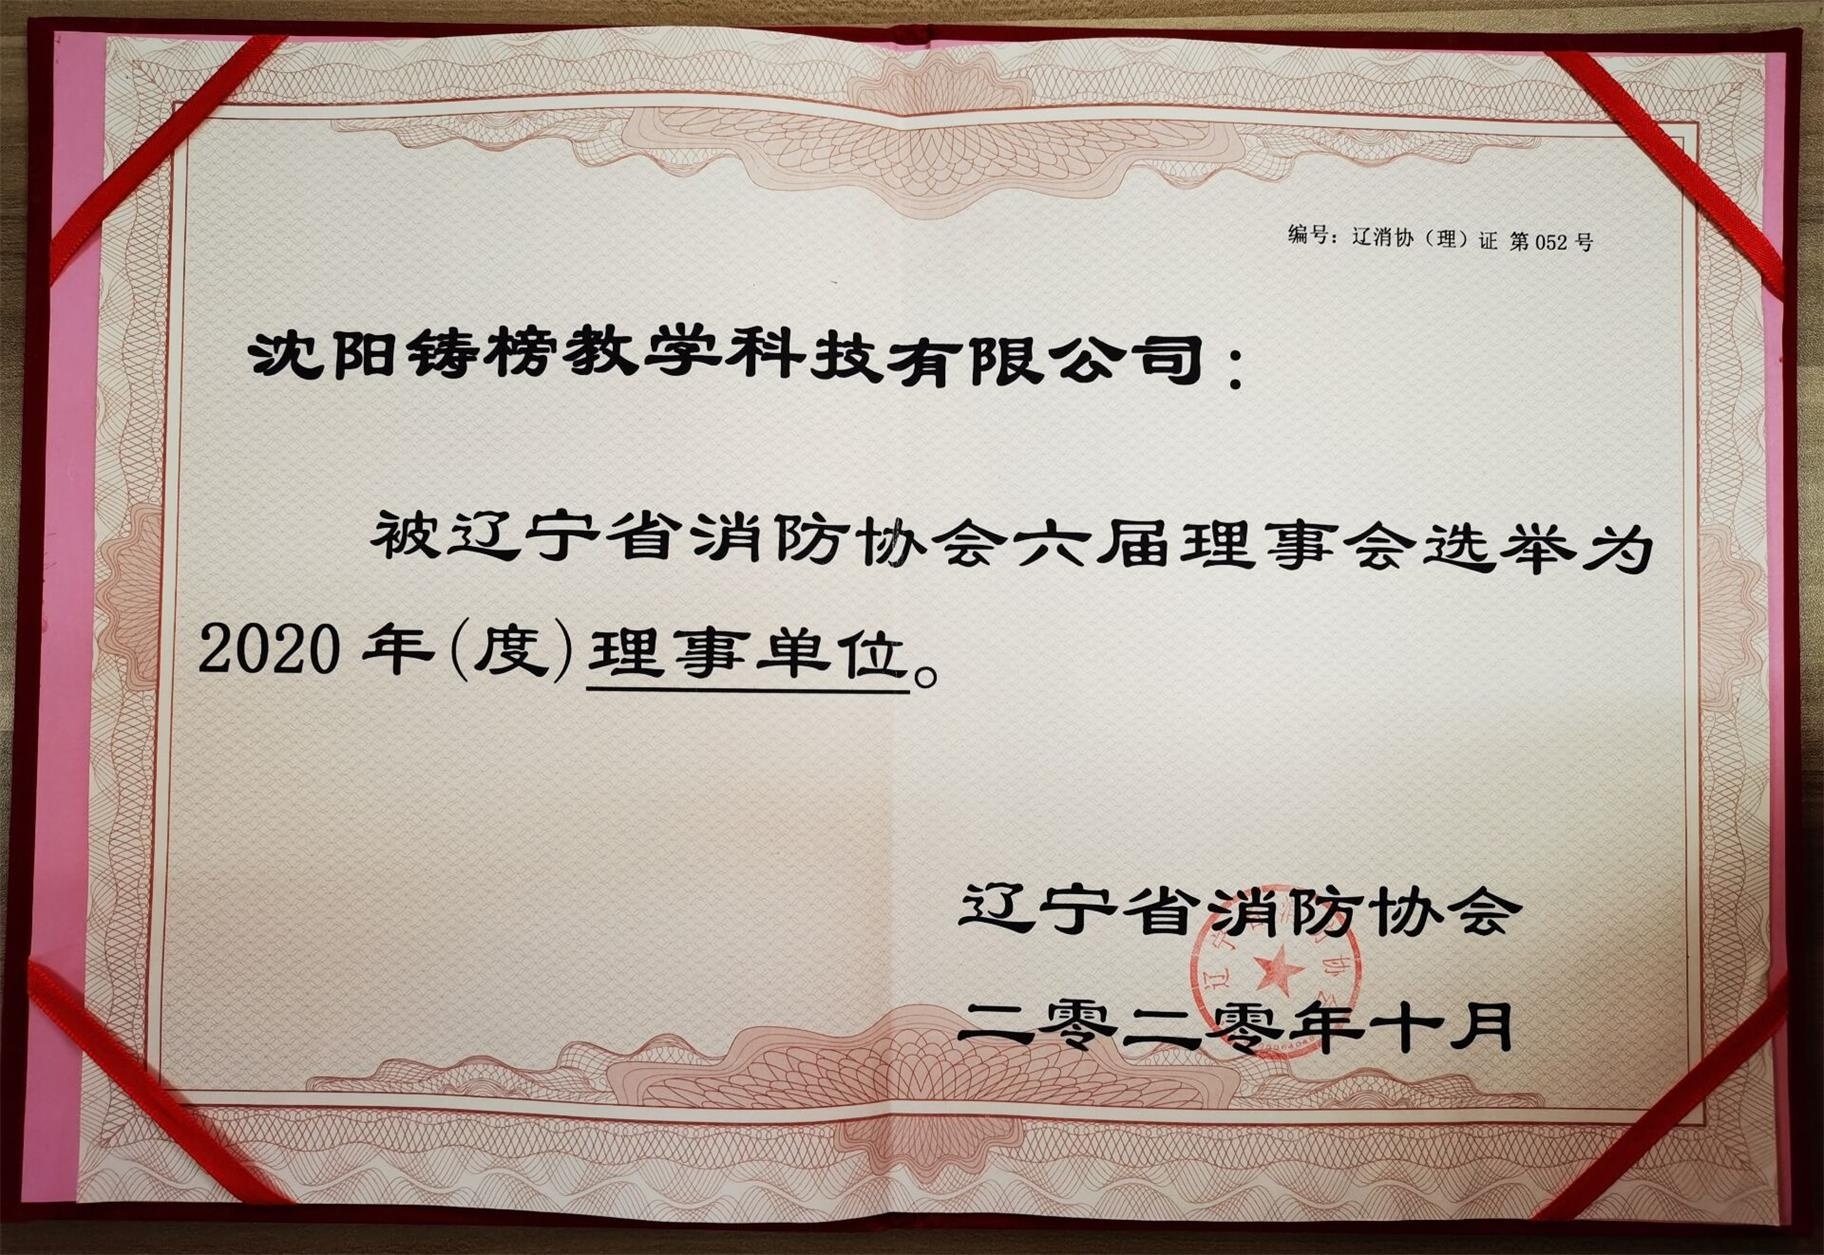 编号：辽消协（理）证 第052号
沈阳铸榜教学科技有限公司：
被辽宁省消防协会六届理事会选举为
2020年(度)理事单位。
辽宁省消防协会
二零二零年十月